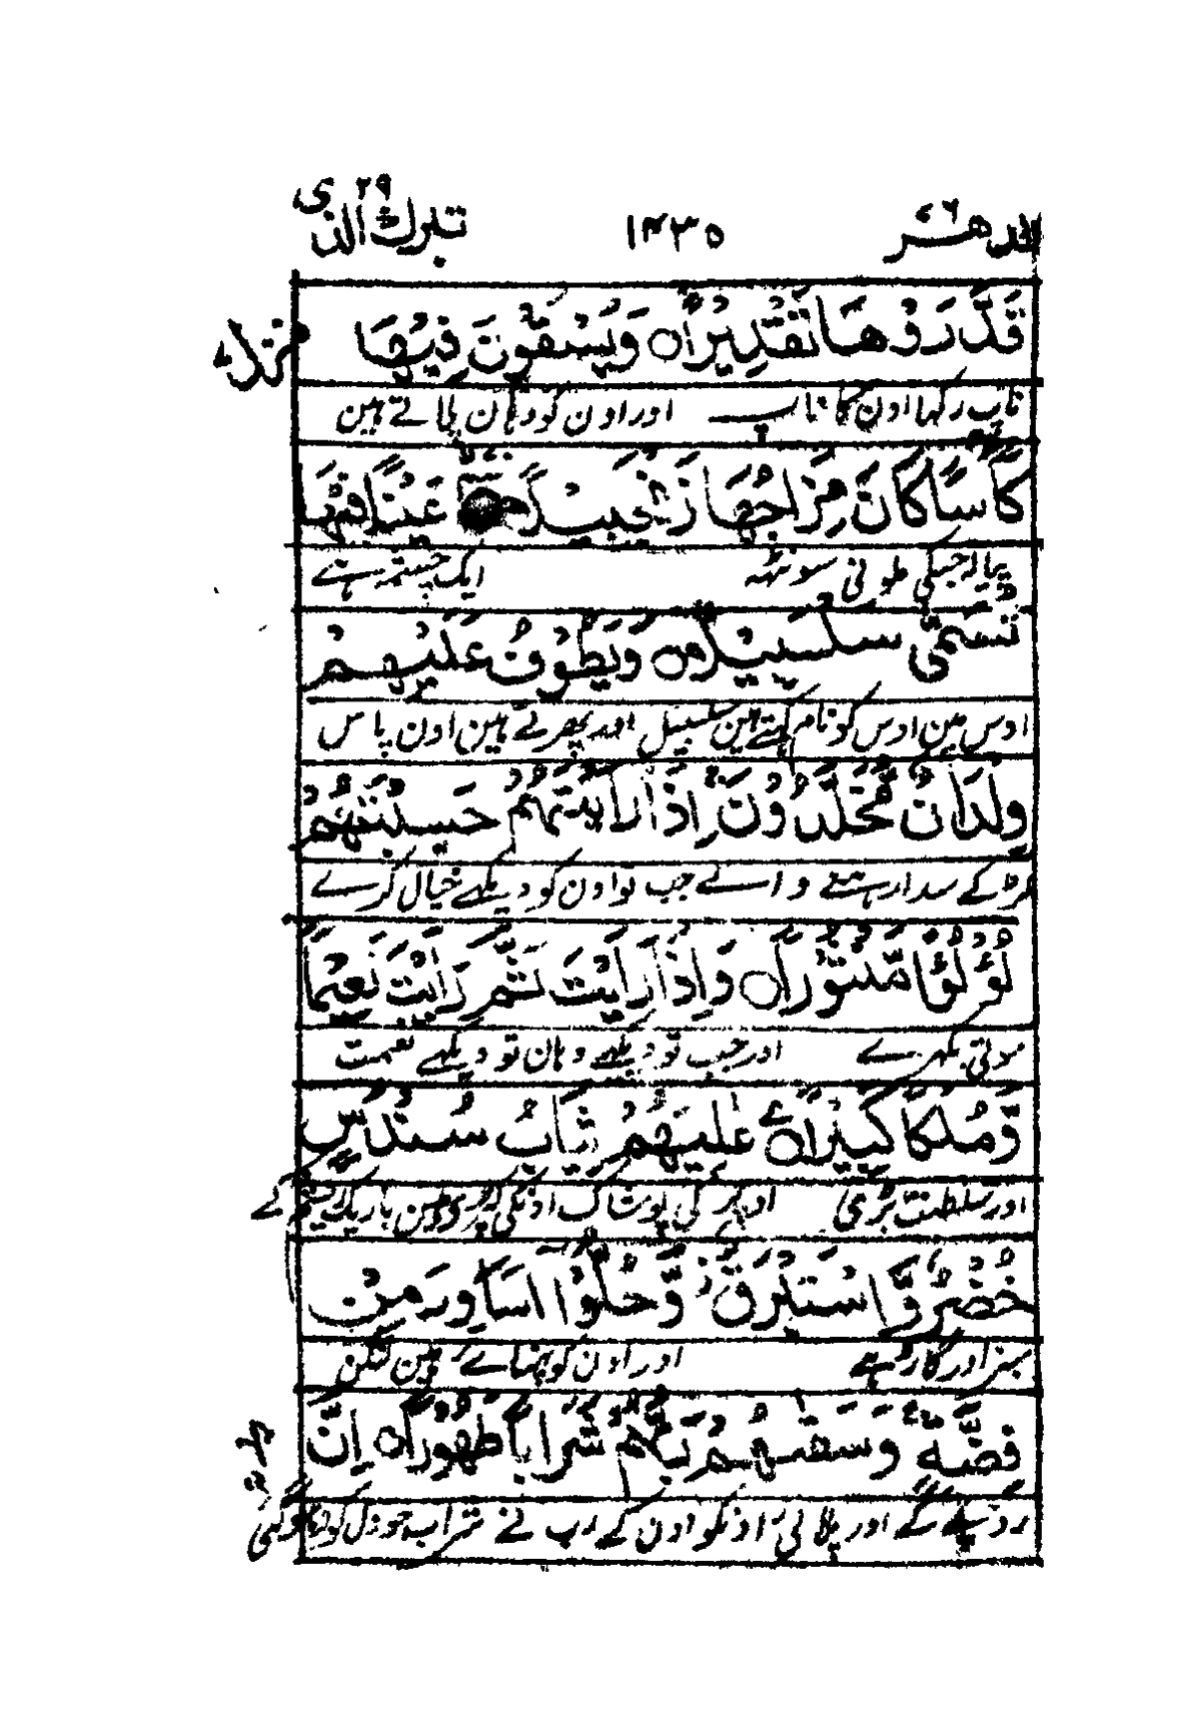 الدهر ٧٦ ١٤٣٥ تبرك الذى ٢٩
قَدَّرُوْهَا تَقْدِيْرًا ۝ وَيُسْقَوْنَ فِيْهَا
ناپ رکہا اون کا ناپ اور اون کو وہان پلاتے ہین
كَأْسًا كَانَ مِزَاجُهَا زَنْجَبِيْلًا ۝ عَيْنًا فِيْهَا
پیالہ جسکی ملونی سونٹھہ ایک چشمہ ہے
تُسَمّٰى سَلْسَبِيْلًا ۝ وَيَطُوْفُ عَلَيْهِمْ
اوس مین اوس کو نام کہتے ہین سلسبیل اور پھرتے ہین اون پاس
وِلْدَانٌ مُّخَلَّدُوْنَ ۚ اِذَا رَاَيْتَهُمْ حَسِبْتَهُمْ
لڑکے سدا رہنے والے جب تو اون کو دیکہے خیال کرے
لُؤْلُؤًا مَّنْثُوْرًا ۝ وَاِذَا رَاَيْتَ ثَمَّ رَاَيْتَ نَعِيْمًا
موتی بکہرے اور جب تو دیکہے وہان تو دیکہے نعمت
وَّمُلْكًا كَبِيْرًا ۝ عٰلِيَهُمْ ثِيَابُ سُنْدُسٍ
اور سلطنت بڑی اوپر کی پوشاک اونکی کپڑی ہین باریک ریشم کے
خُضْرٌ وَّاِسْتَبْرَقٌ ۚ وَّحُلُّوْٓا اَسَاوِرَ مِنْ
سبز اور گاڑہے اور اون کو پہنائے ہین کنگن
فِضَّةٍ ۚ وَسَقٰىهُمْ رَبُّهُمْ شَرَابًا طَهُوْرًا ۝ اِنَّ
اور پلائی اونکو اون کے رب نے شراب جو دل کو